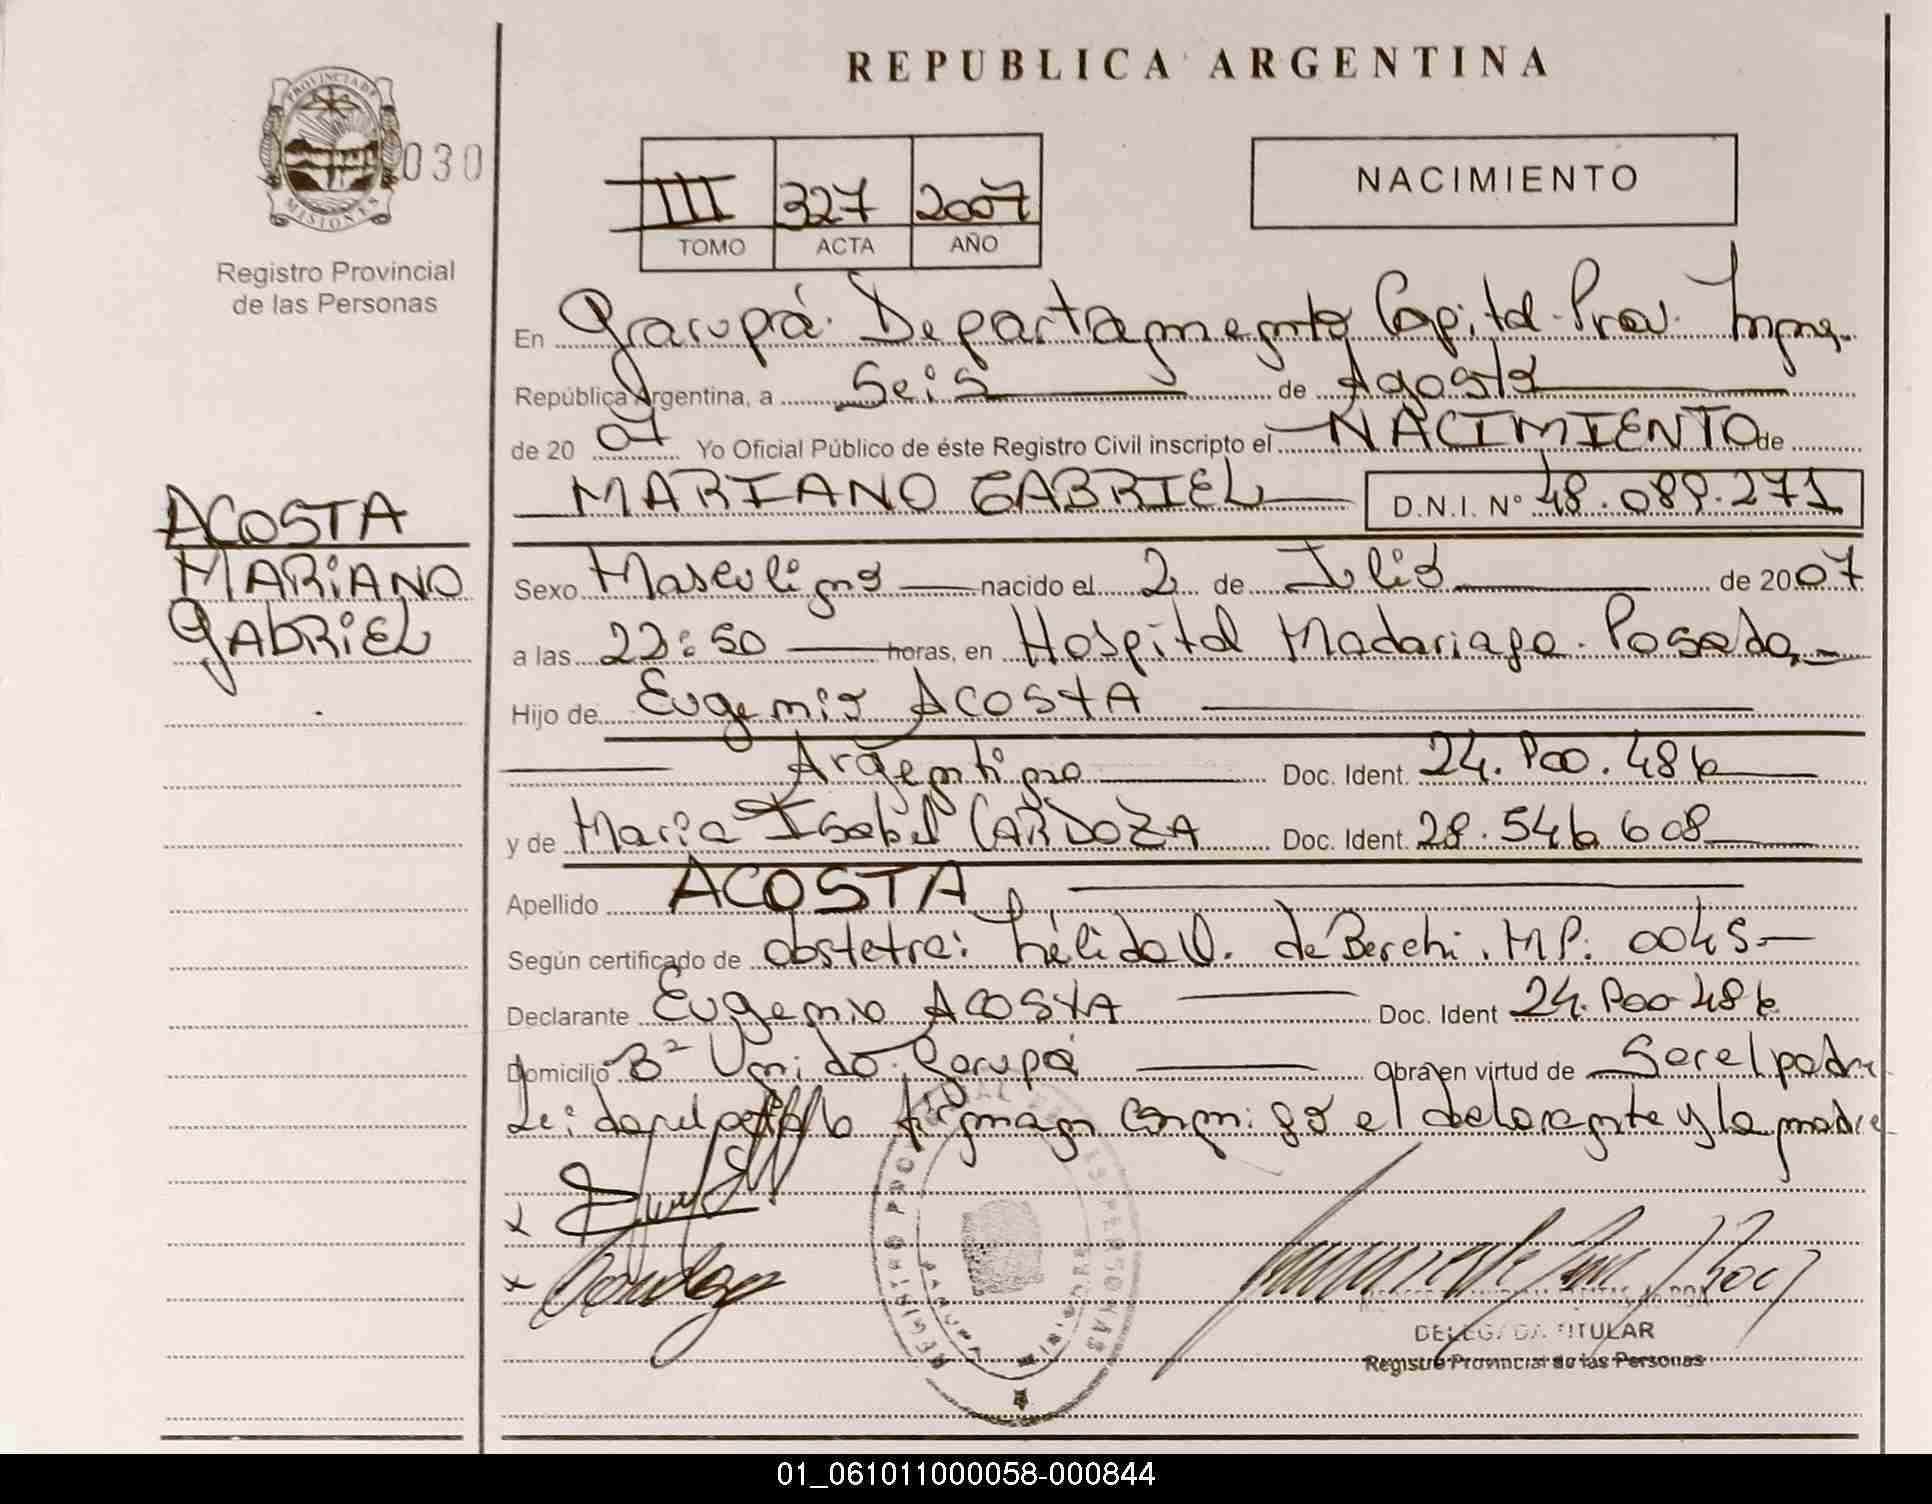 REPUBLICA ARGENTINA
PROVINCIA DE
MISIONES
030
Registro Provincial
de las Personas
III 327 2007
TOMO ACTA AÑO
NACIMIENTO
En Garupá. Departamento Capital. Prov. Mnes.
República Argentina, a Seis de Agosto
de 2007 Yo Oficial Público de éste Registro Civil inscripto el NACIMIENTO de
MARIANO GABRIEL D.N.I. Nº 48.089.271
ACOSTA
MARIANO
GABRIEL
Sexo Masculino nacido el 2 de Julio de 2007
a las 22:50 horas, en Hospital Madariaga. Posadas
Hijo de Eugenio ACOSTA
Argentino Doc. Ident. 24.900.486
y de Maria Isabel CARDOZA Doc. Ident. 28.546.608
Apellido ACOSTA
Según certificado de obstetra: Nélida V. de Berchi. MP. 0045
Declarante Eugenio ACOSTA Doc. Ident 24.900.486
Domicilio Bº Unido. Garupá Obra en virtud de Ser el padre
Leida el acta firman conmigo el declarante y la madre
x
x
REGISTRO PROVINCIAL DE LAS PERSONAS
DELEGADA TITULAR
Registro Provincial de las Personas
01_061011000058-000844